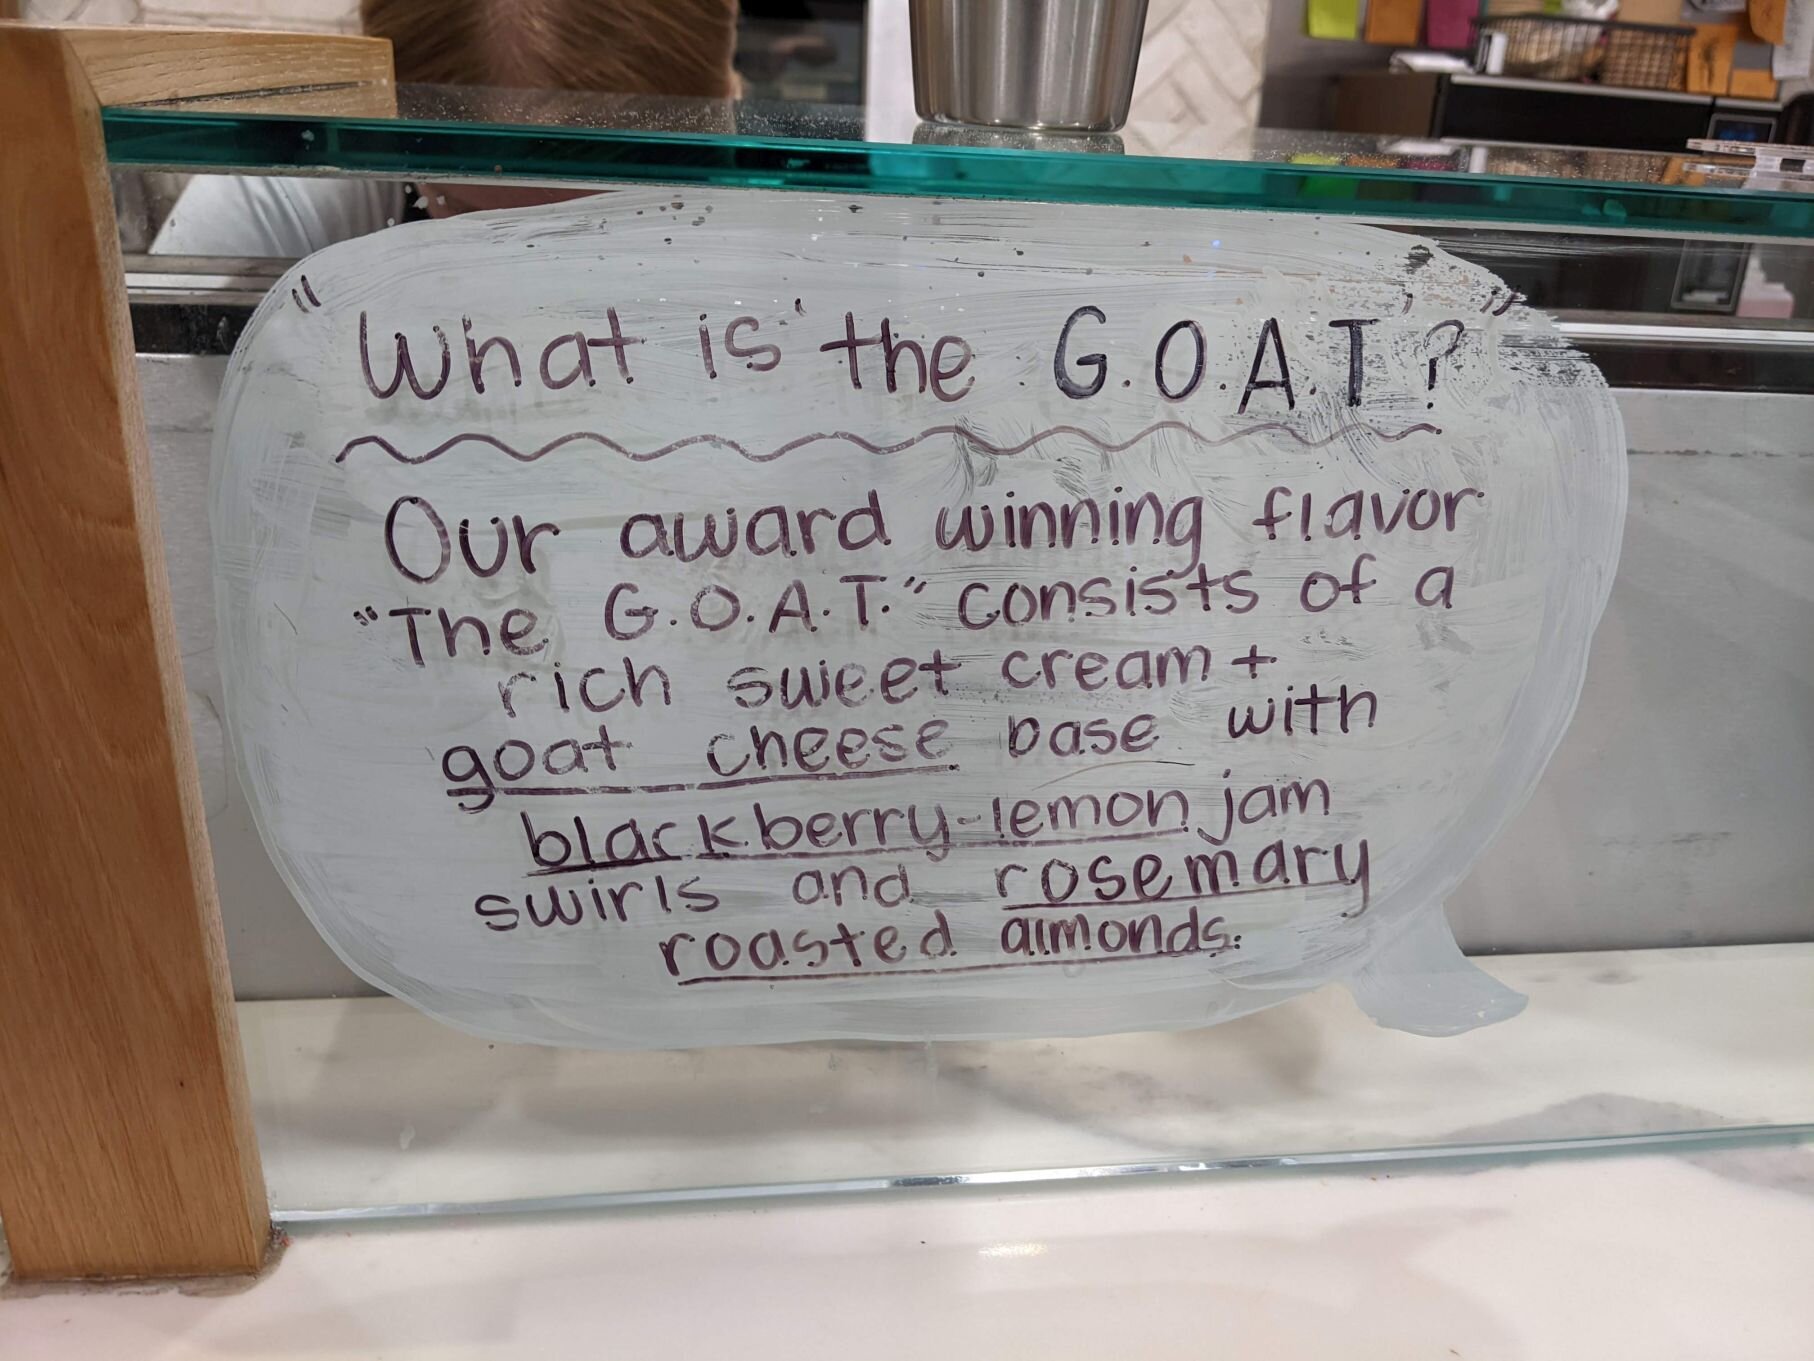 "What is 'the G.O.A.T'?"
Our award winning flavor
"The G.O.A.T." consists of a
rich sweet cream +
goat cheese base with
blackberry-lemon jam
swirls and rosemary
roasted almonds.